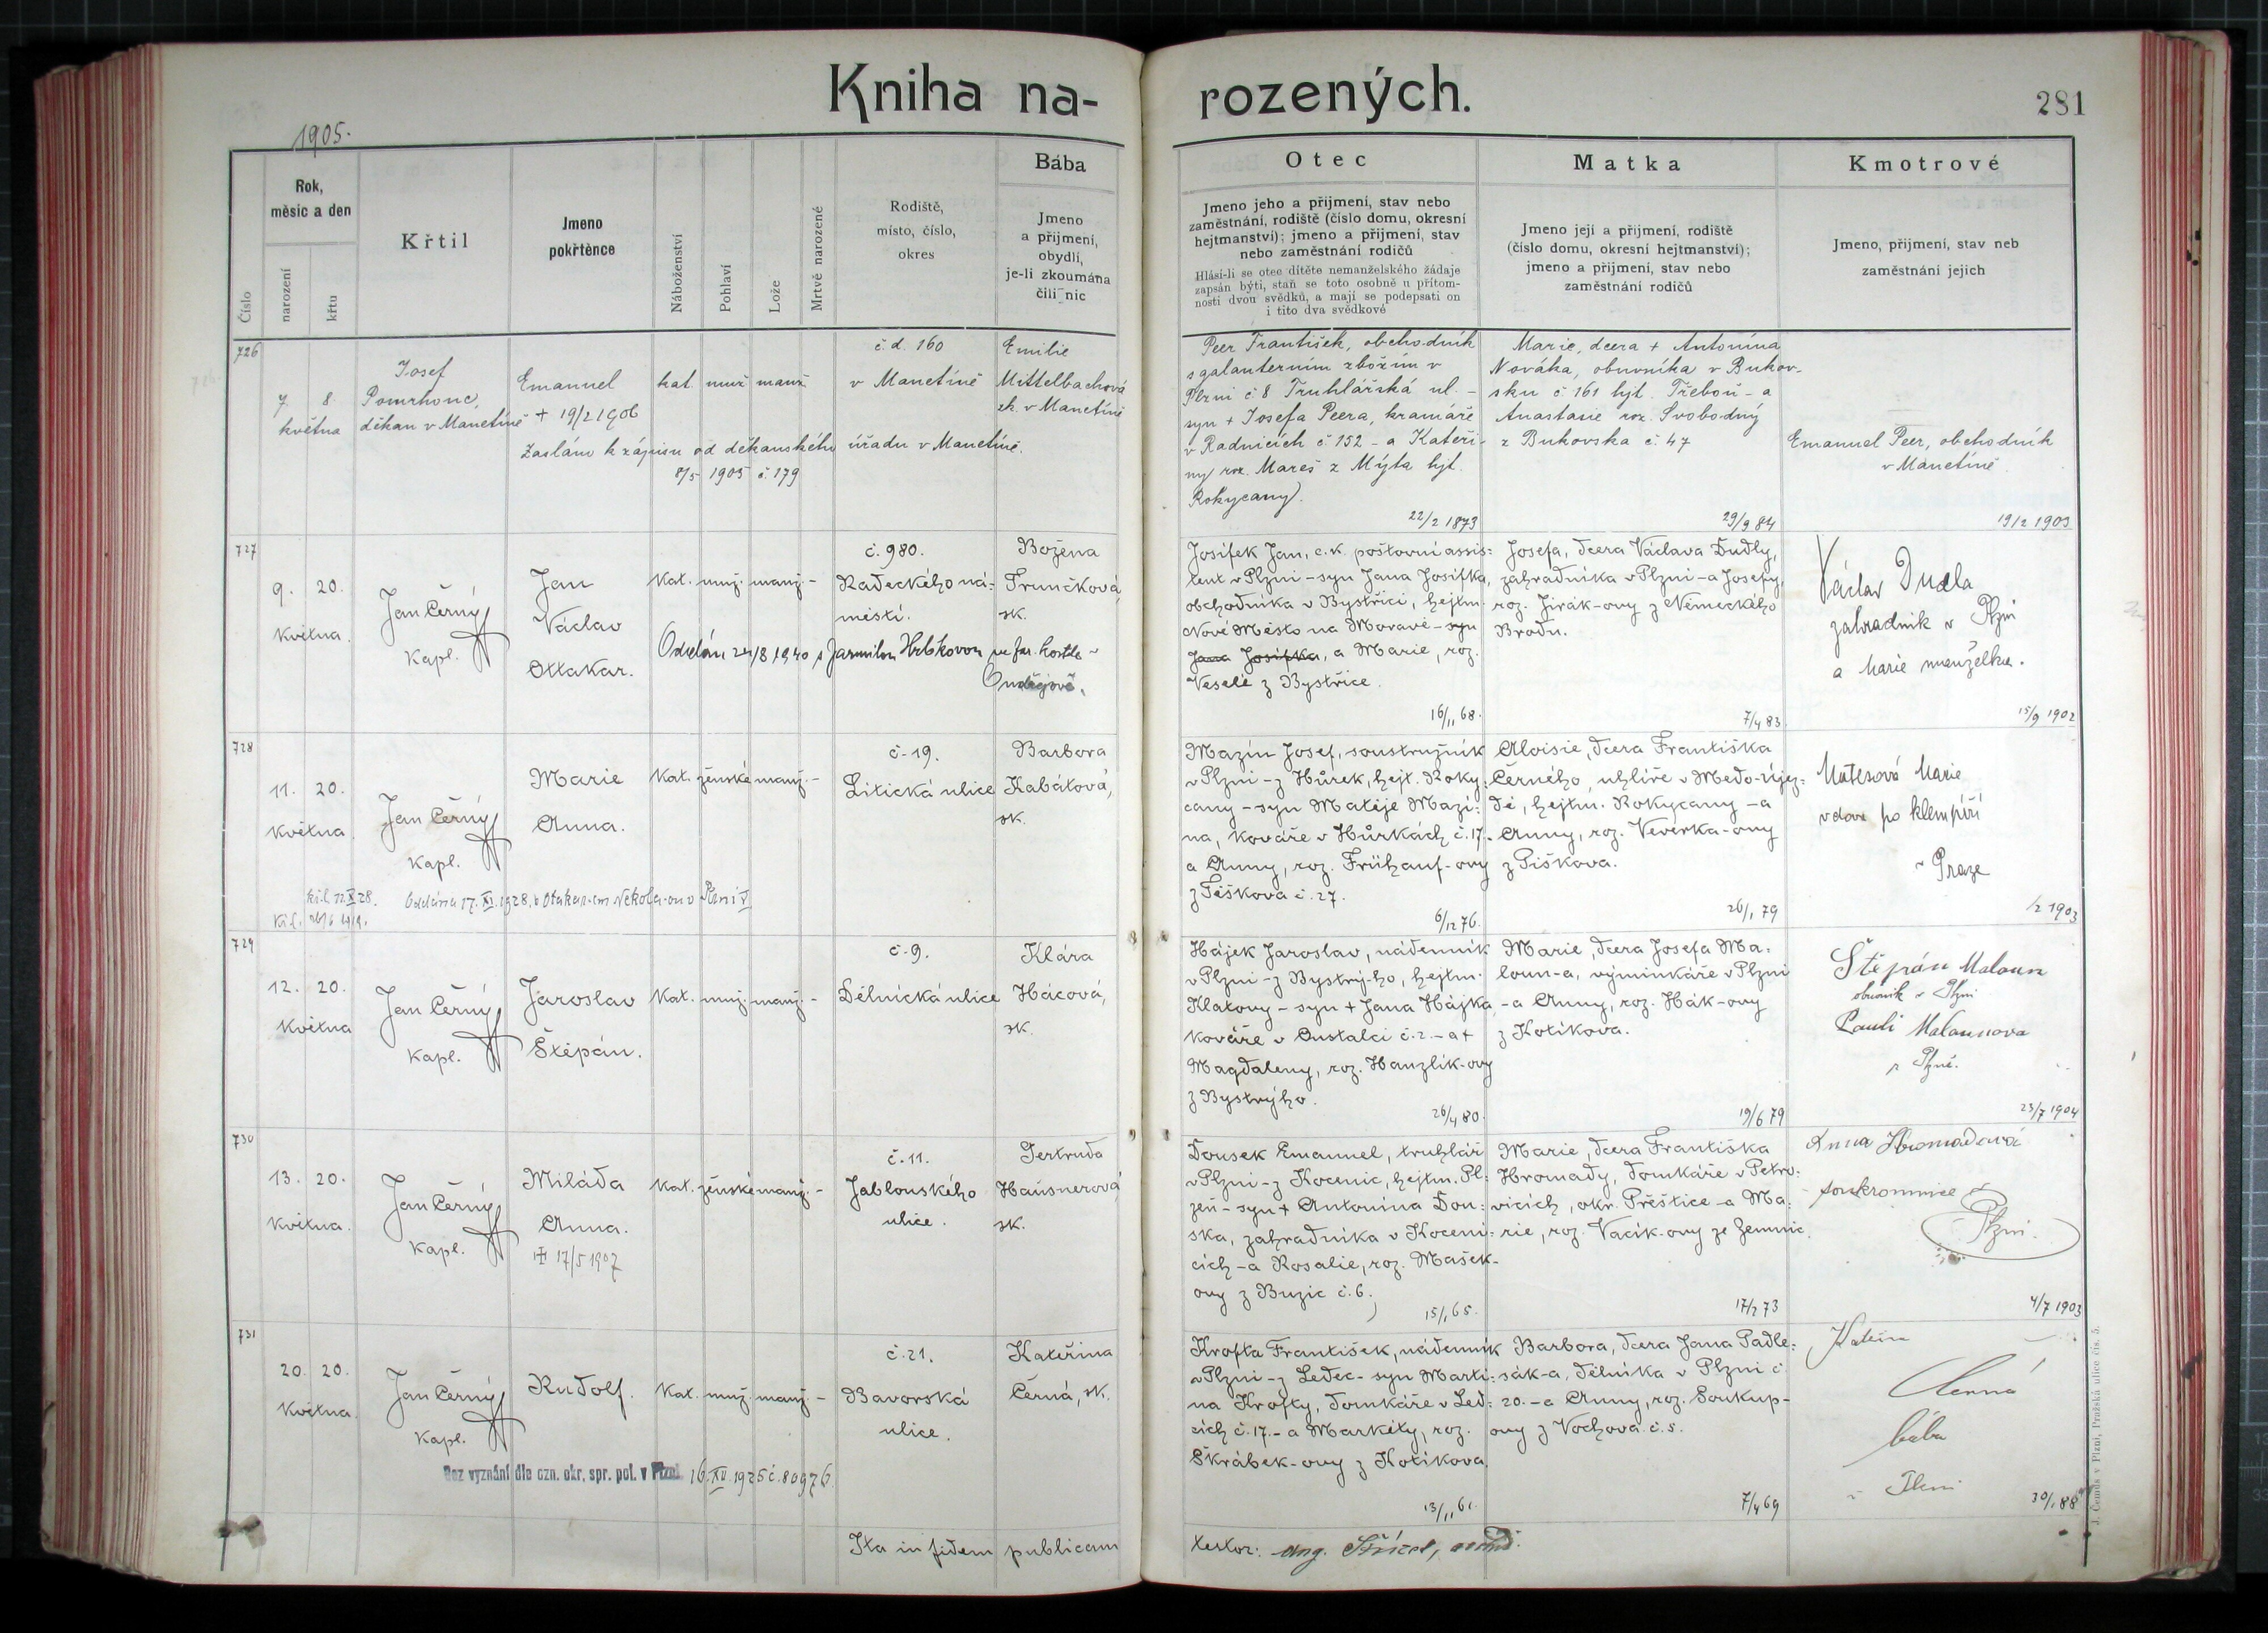 Kniha na-
rozených.
281
1905.
Číslo
Rok,
měsíc a den
narození
křtu
Křtil
Jmeno
pokřtěnce
Náboženství
Pohlaví
Lože
Mrtvě narozené
Rodiště,
místo, číslo,
okres
Bába
Jmeno
a přijmení,
obydlí,
je-li zkoumána
čili nic
Otec
Jmeno jeho a přijmení, stav nebo
zaměstnání, rodiště (číslo domu, okresní
hejtmanství); jmeno a přijmení, stav
nebo zaměstnání rodičů
Hlásí-li se otec dítěte nemanželského žádaje
zapsán býti, staň se toto osobně u přítom-
nosti dvou svědků, a mají se podepsati on
i tito dva svědkové
Matka
Jmeno její a přijmení, rodiště
(číslo domu, okresní hejtmanství);
jmeno a přijmení, stav nebo
zaměstnání rodičů
Kmotrové
Jmeno, přijmení, stav neb
zaměstnání jejich
726
7. 8.
května
Josef
Pomrhonc,
děkan v Manetíně
Emanuel
+ 19/2 1906
kat. muž. manž.
č. d. 160
v Manetíně
Emilie
Mittelbachová
zk. v Manetíně
Zasláno k zápisu od děkanského úřadu v Manetíně.
8/5 1905 č. 179
Peer František, obchodník
s galanterním zbožím v
Plzni č 8 Truhlářská ul. -
syn + Josefa Peera, kramáře
v Radnicích č 152 - a Kateři-
ny roz. Mareš z Mýta hjt.
Rokycany).
22/2 1873
Marie, dcera + Antonína
Nováka, obuvníka v Bukov-
sku č 161 hjt. Třeboň - a
Anastasie roz. Svobodný
z Bukovska č. 47
29/9 84
Emanuel Peer, obchodník
v Manetíně
19/2 1903
727
9. 20.
května.
Jan Černý
kapl.
Jan
Václav
Ottakar.
kat. muž. manž. -
č. 980.
Radeckého ná-
městí.
Božena
Trunčková,
zk.
Oddán 24/8 1940 s Jarmilou Hrbkovou ve far. kostele v
Ondřejově.
Josífek Jan, c. k. poštovní assis-
tent v Plzni - syn Jana Josífka,
obchodníka v Bystřici, hejtm.
Nové Město na Moravě - syn
Jana Josífka, a Marie, roz.
Veselé z Bystřice.
16/11 68.
Josefa, dcera Václava Dudly,
zahradníka v Plzni - a Josefy,
roz. Jirák-ovy z Německého
Brodu.
7/4 83
Václav Dudla
zahradník v Plzni
a Marie manželka.
15/9 1902
728
11. 20.
května.
Jan Černý
kapl.
Marie
Anna.
kat. ženské manž. -
č. 19.
Litická ulice
Barbora
Kabátová,
zk.
Oddána 17. XI. 1928. s Otakarem Nekola-ou v Plzni V
Mazín Josef, soustružník
v Plzni - z Hůrek, hejt. Roky-
cany - syn Matěje Mazí-
na, kováře v Hůrkách č. 17. -
a Anny, roz. Frühauf-ovy
z Těškova č. 27.
6/12 76.
Aloisie, dcera Františka
Černého, uhlíře v Medo-újez-
dě, hejtm. Rokycany - a
Anny, roz. Veverka-ovy
z Piškova.
26/1 79
Matesová Marie
vdova po klempíři
v Praze
1/2 1903
729
12. 20.
května
Jan Černý
kapl.
Jaroslav
Štěpán.
kat. muž. manž. -
č. 9.
Dělnická ulice
Klára
Hácová,
zk.
Hájek Jaroslav, nádenník
v Plzni - z Bystrý-ho, hejtm.
Klatovy - syn + Jana Hájka,
kováře v Oustalči č. 2. - a +
Magdaleny, roz. Hanzlík-ovy
z Bystrýho.
26/4 80.
Marie, dcera Josefa Ma-
loun-a, výminkáře v Plzni
- a Anny, roz. Hák-ovy
z Kotíkova.
19/6 79
Štěpán Maloun
obuvník v Plzni
Pauli Malounova
v Plzně.
23/7 1904
730
13. 20.
května.
Jan Černý
kapl.
Miláda
Anna.
+ 17/5 1907
kat. ženské manž. -
č. 11.
Jablonského
ulice.
Gertruda
Hausnerová
zk.
Dousek Emanuel, truhlář
v Plzni - z Kocenic, hejtm. Pl-
zeň - syn + Antonína Dou-
ska, zahradníka v Koceni-
cích - a Rosalie, roz. Mašek-
ovy z Buzic č. 6.
15/1 65.
Marie, dcera Františka
Hromady, domkáře v Petro-
vicích, okr. Přeštice - a Ma-
rie, roz. Vacík-ovy ze Zemnic.
17/2 73
Anna Hromadová
soukromnice v
Plzni.
4/7 1903
731
20. 20.
května.
Jan Černý
kapl.
Rudolf.
kat. muž. manž. -
č. 21.
Bavorská
ulice.
Kateřina
Černá, zk.
Bez vyznání dle ozn. okr. spr. pol. v Plzni 16. XII. 1925 č. 80976.
Krofta František, nádenník
v Plzni - z Ledec - syn Marti-
na Krofty, domkáře v Led-
cích č. 17. - a Markéty, roz.
Škrábek-ovy z Kotíkova.
13/11 61.
Barbora, dcera Jana Padle-
sák-a, dělníka v Plzni č.
20. - a Anny, roz. Soukup-
ovy z Vochova č. 5.
7/4 69
Kateřina
Černá
bába
v Plzni
30/1 88
Ita in fidem publicam
testor:
J. Čemus v Plzni, Pražská ulice čís. 5.